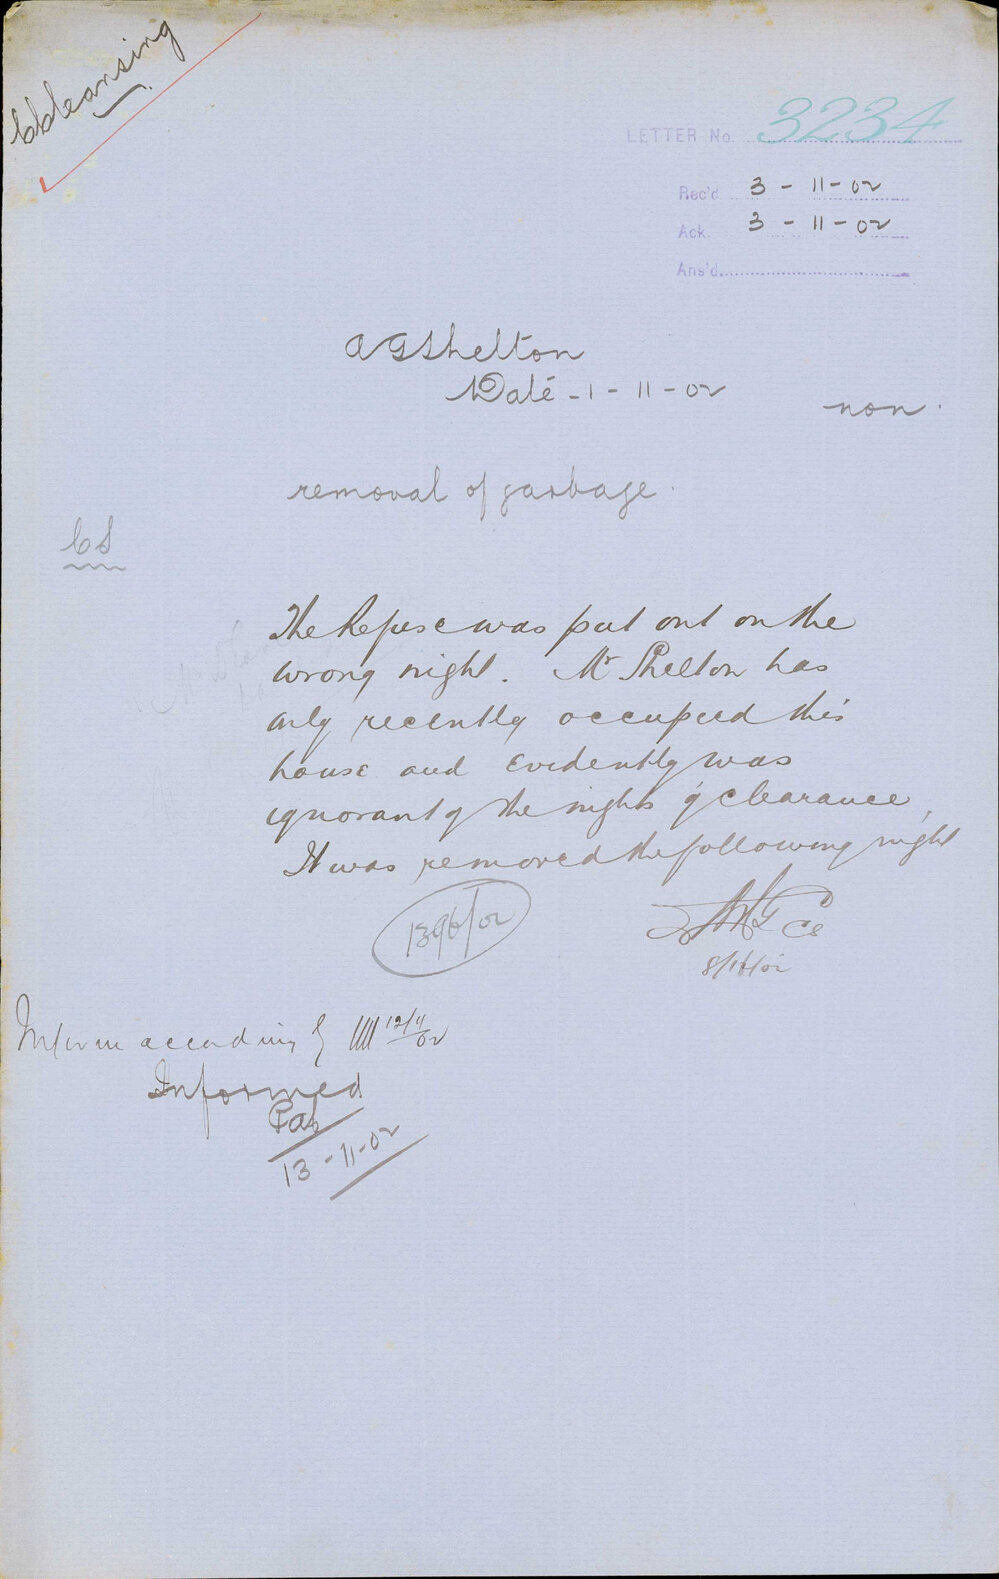 Cleansing
LETTER No. 3234
Rec'd 3-11-02
Ack. 3-11-02
Ans'd.
A G Shelton
Date - 1-11-02
non
removal of garbage.
CS
The Refuse was put out on the
wrong night. Mr Shelton has
only recently occupied this
house and evidently was
ignorant of the nights of clearance,
It was removed the following night
1396/02
CS
8/11/02
Inform accordingly 12/11/02
Informed
13-11-02